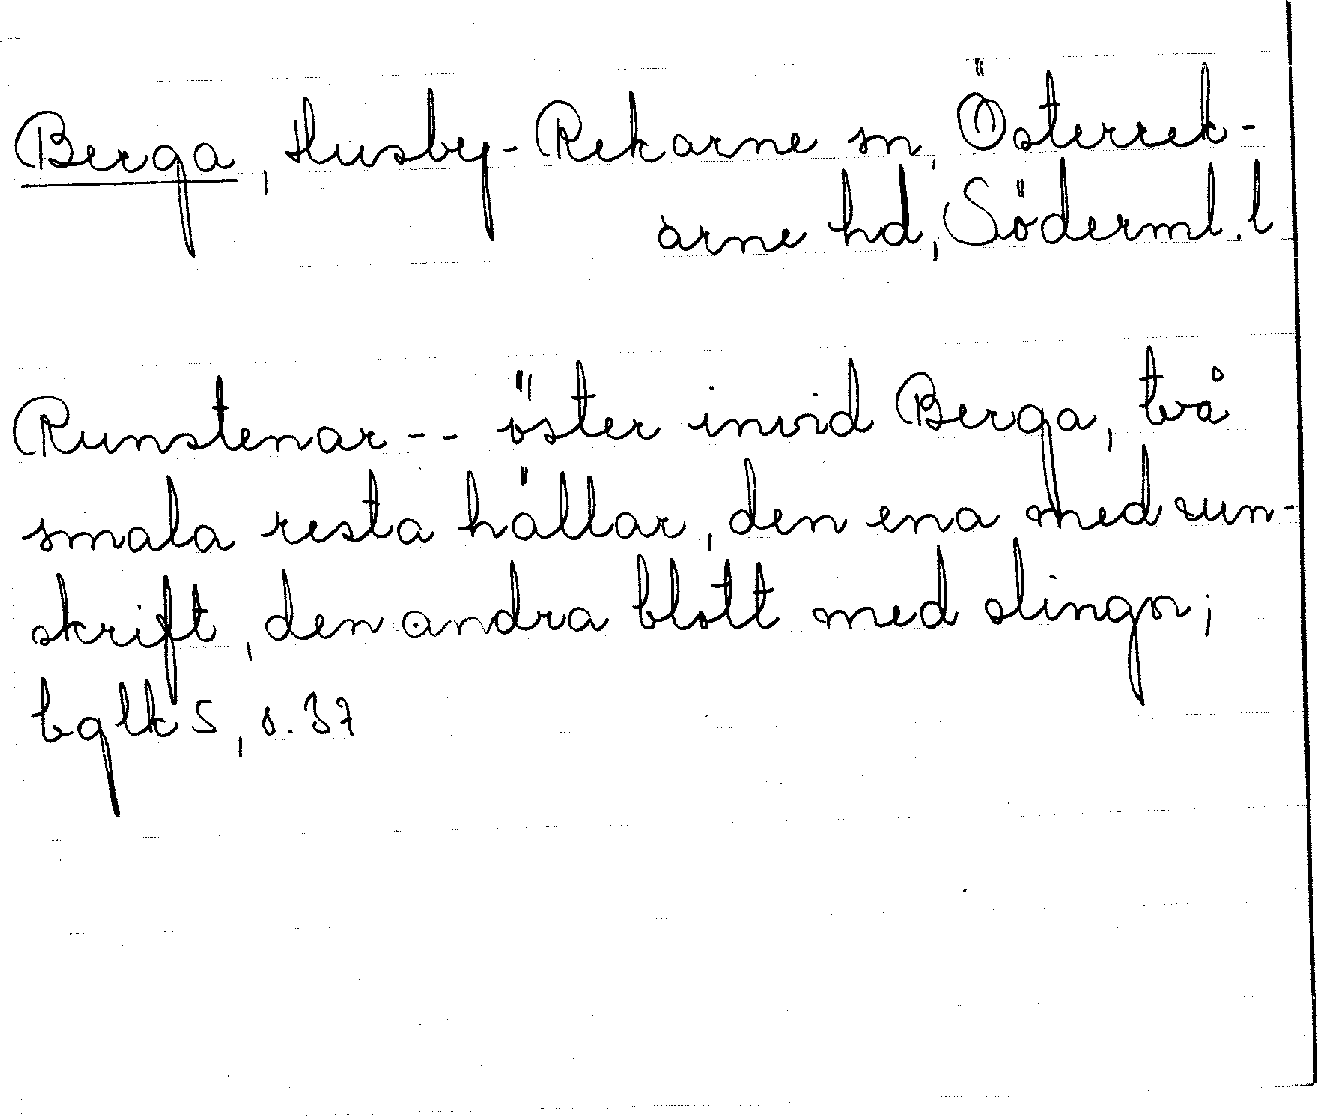 Berga, Husby-Rekarne sn, Österrek-
arne hd, Söderml. l
Runstenar -- öster invid Berga, två
smala resta hällar, den ena med run-
skrift, den andra blott med slingor;
bglk 5, s. 37